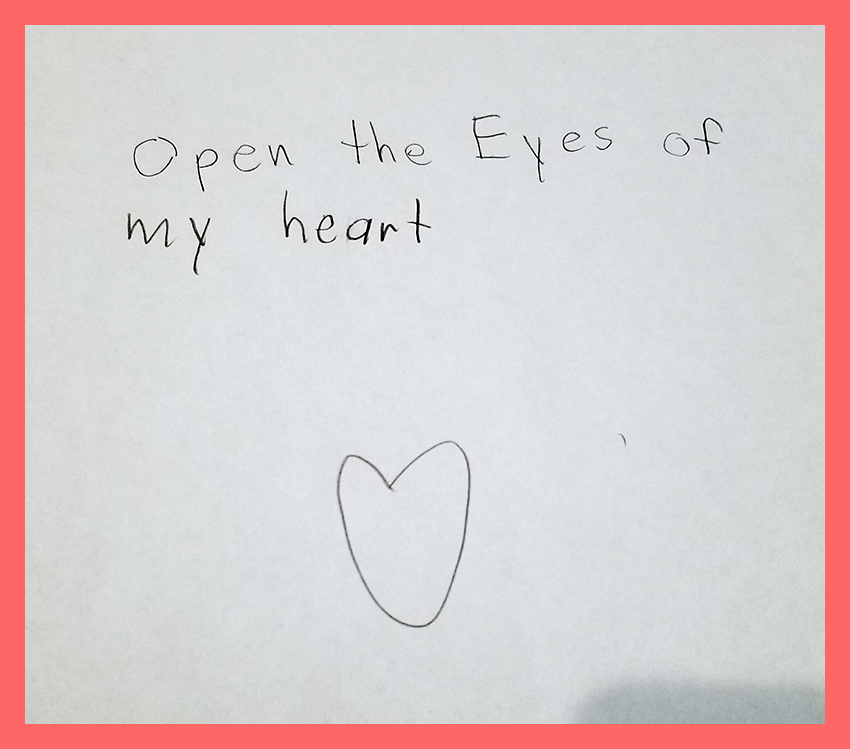 Open the Eyes of
my heart